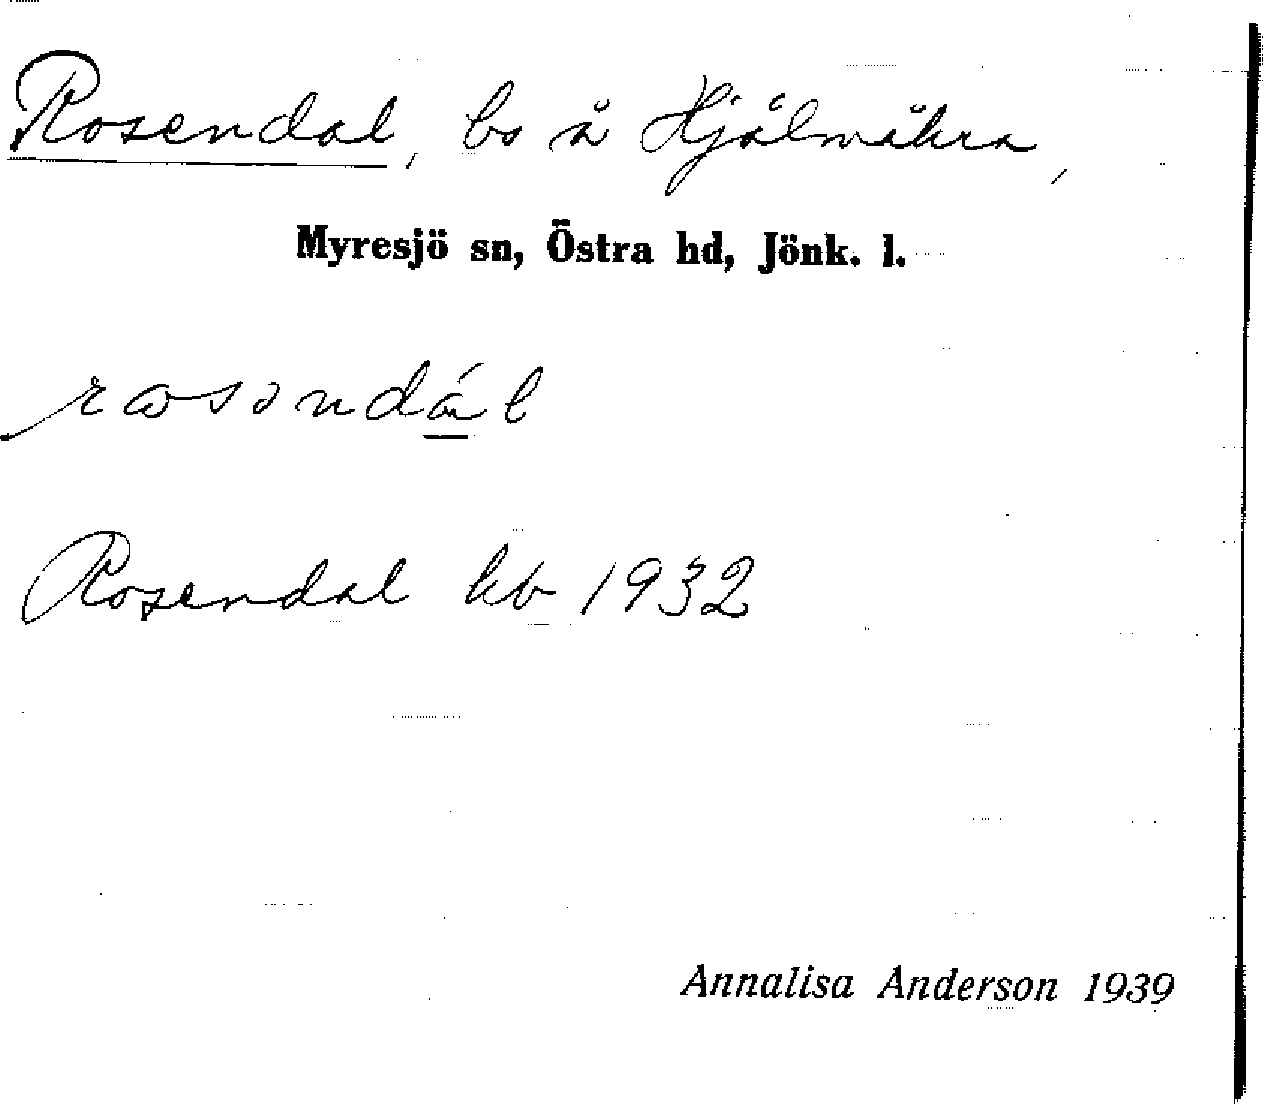 Rosendal, bs å Hjälmåkra,
Myresjö sn, Östra hd, Jönk. l.
Rosendal kb 1932
Annalisa Anderson 1939